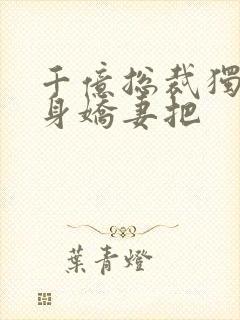 千億總裁獨
身嬌妻把
葉青燈